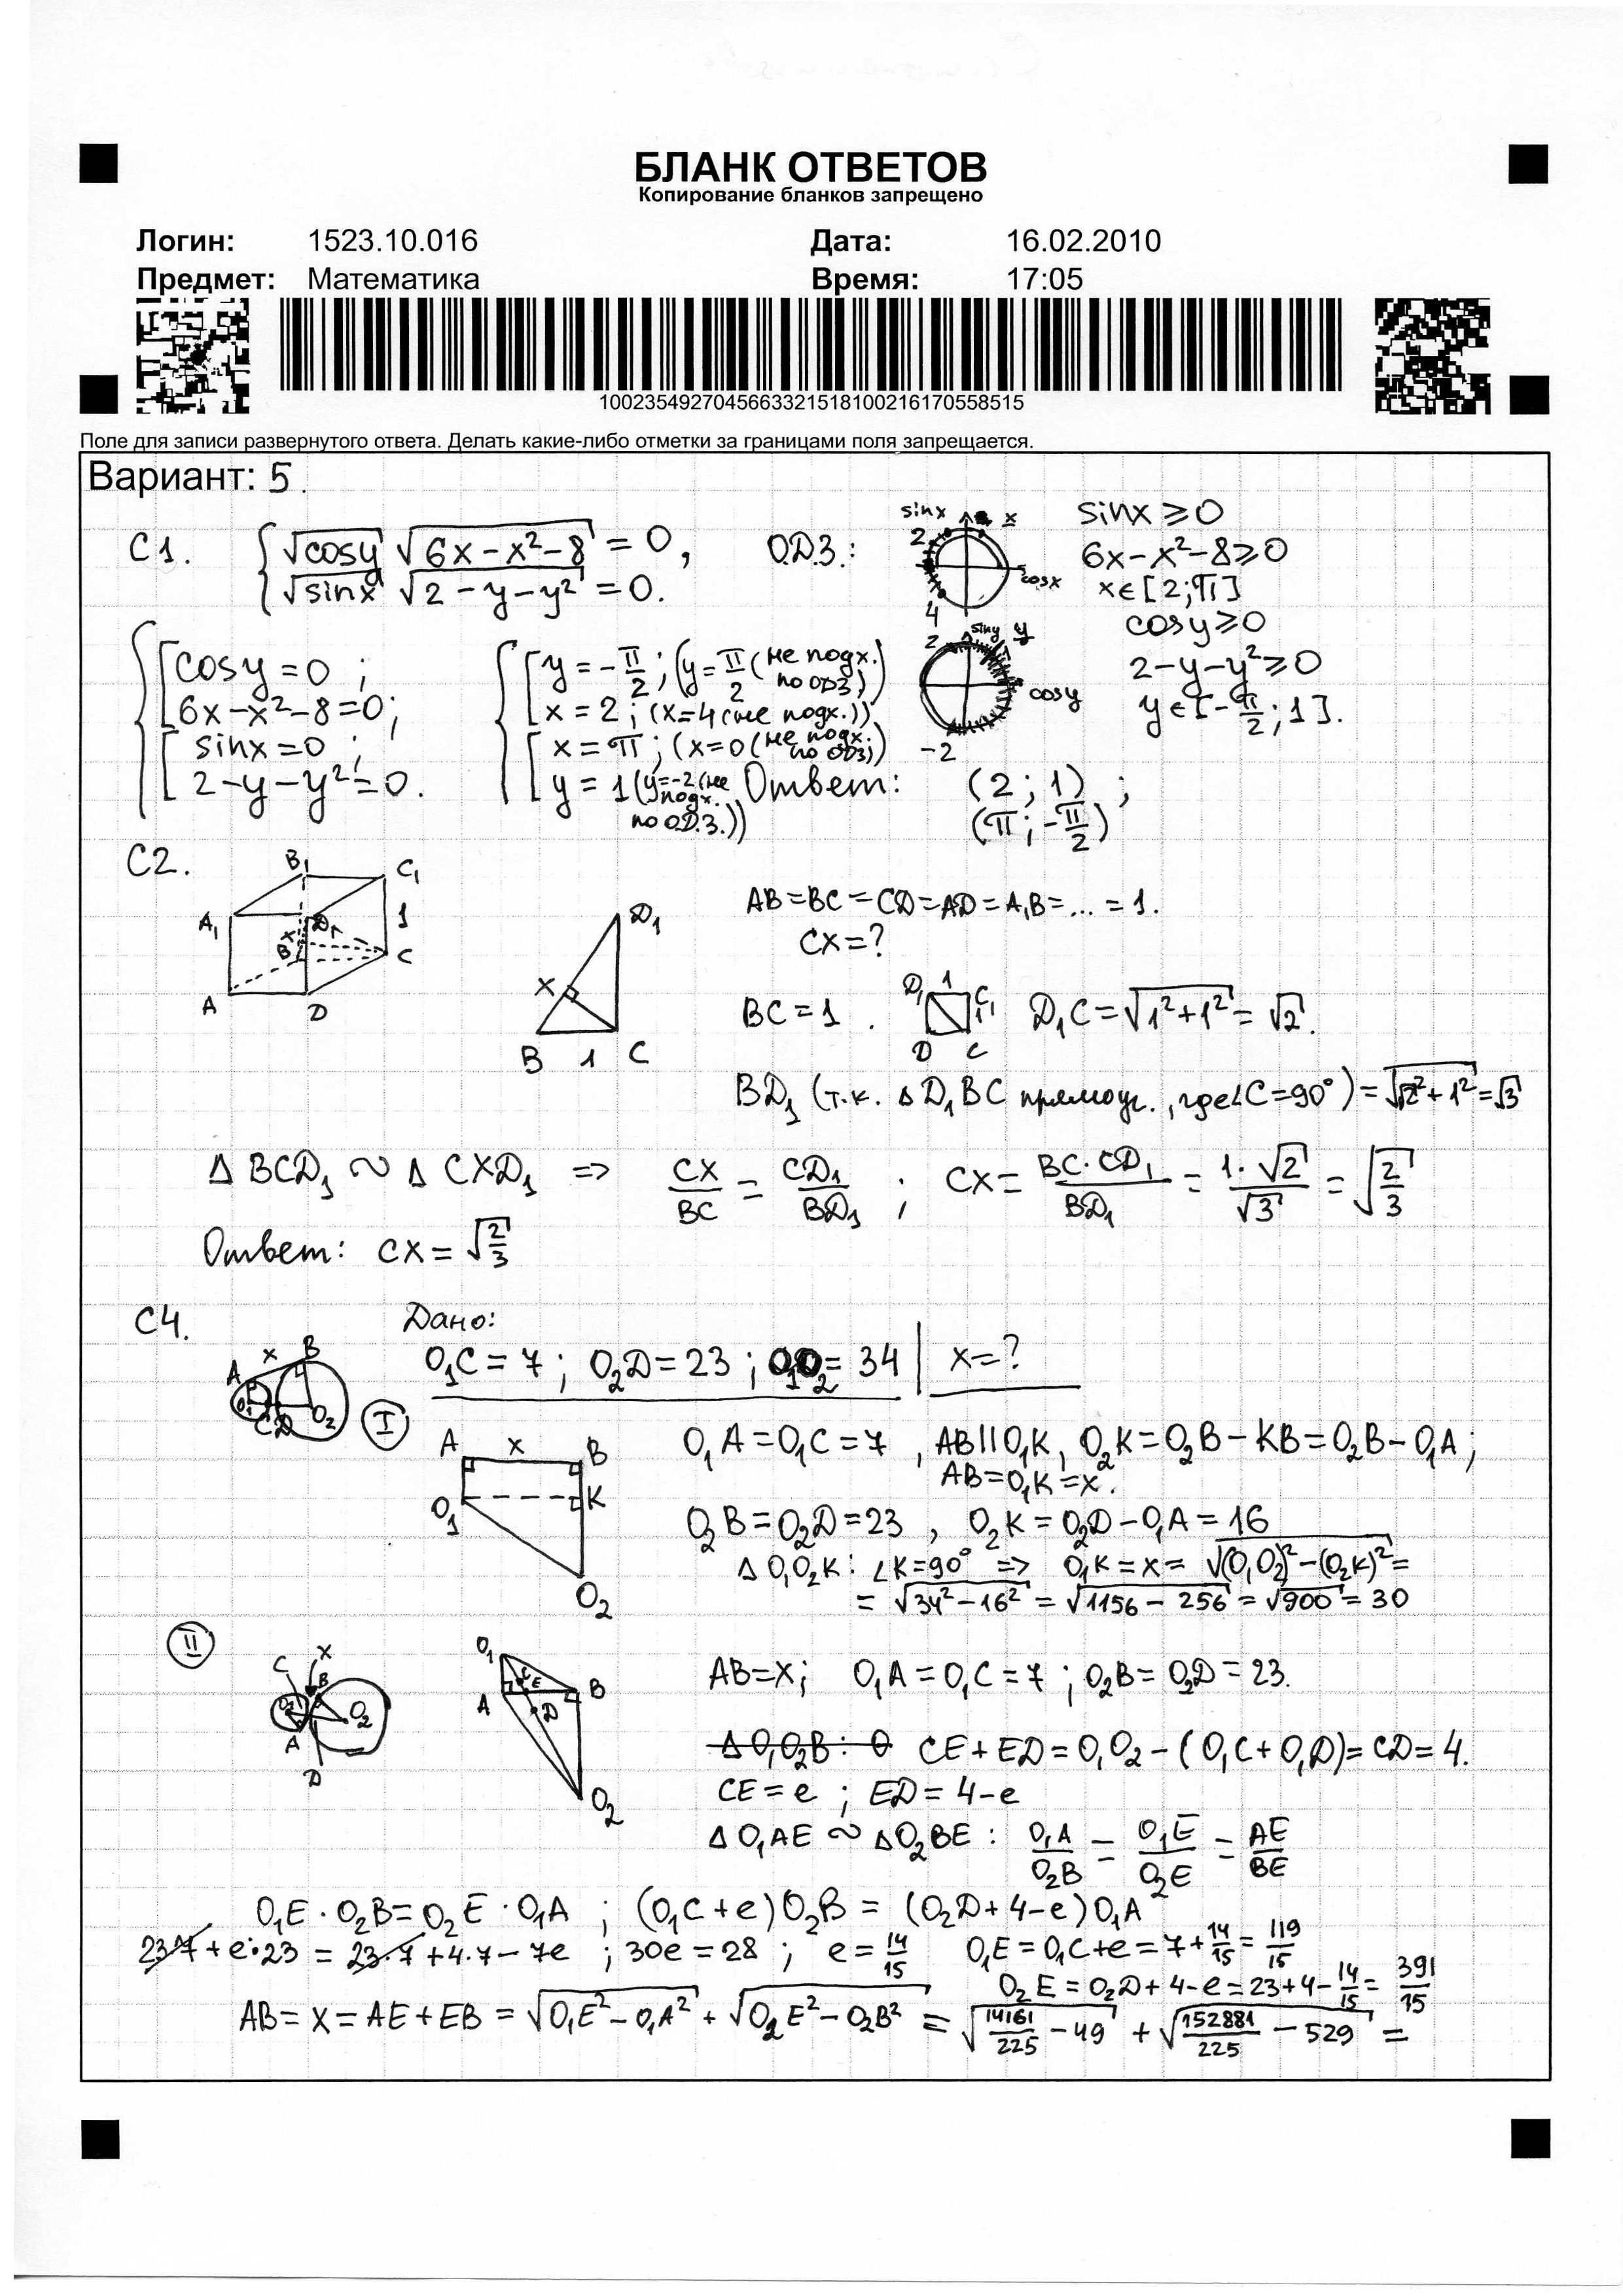 БЛАНК ОТВЕТОВ
Копирование бланков запрещено
Логин: 1523.10.016 Дата: 16.02.2010
Предмет: Математика Время: 17:05
1002354927045663321518100216170558515
Поле для записи развернутого ответа. Делать какие-либо отметки за границами поля запрещается.
Вариант: 5.
C1. { √cosy √(6x-x²-8) = 0, О.Д.З.: sinx x sinx ≥ 0
√sinx √(2-y-y²) = 0. 2 4 cosx 6x-x²-8 ≥ 0
x∈[2;π]
cosy ≥ 0
[cosy=0; [y=-π/2; (y=π/2 (не подх. по ОДЗ)) 2 siny y 2-y-y² ≥ 0
6x-x²-8=0; x=2; (x=4 (не подх.)) cosy y∈[-π/2; 1].
[sinx=0; [x=π; (x=0 (не подх. по ОДЗ)) -2
2-y-y²=0. y=1 (y=-2 (не подх. по О.Д.З.)) Ответ: (2; 1);
(π; -π/2)
C2. B₁ C₁ A₁ D₁ 1 X B C A D
D₁ X B 1 C
AB=BC=CD=AD=A₁B=...=1.
CX=?
BC=1. D₁ 1 C₁ 1 D C D₁C=√(1²+1²)=√2.
BD₁ (т.к. ΔD₁BC прямоуг., где∠C=90°)=√(√2²+1²)=√3
ΔBCD₁ ~ ΔCXD₁ => CX/BC = CD₁/BD₁; CX= BC·CD₁/BD₁ = 1·√2/√3 = √(2/3)
Ответ: CX=√(2/3)
C4. Дано:
A x B O₁ C D O₂ O₁C=7; O₂D=23; O₁O₂=34 | x=?
I
A x B K O₁ O₂ O₁A=O₁C=7, AB||O₁K, O₂K=O₂B-KB=O₂B-O₁A;
AB=O₁K=x.
O₂B=O₂D=23, O₂K=O₂D-O₁A=16
ΔO₁O₂K: ∠K=90° => O₁K=x=√((O₁O₂)²-(O₂K)²)=
=√(34²-16²)=√(1156-256)=√900=30
II
C x B O₂ A D O₁ C E B A D O₂ AB=x; O₁A=O₁C=7; O₂B=O₂D=23.
ΔO₁O₂B: O CE+ED=O₁O₂-(O₁C+O₁D)=CD=4.
CE=e; ED=4-e
ΔO₁AE ~ ΔO₂BE: O₁A/O₂B = O₁E/O₂E = AE/BE
O₁E·O₂B=O₂E·O₁A; (O₁C+e)O₂B=(O₂D+4-e)O₁A
23·7+e·23=23·7+4·7-7e; 30e=28; e=14/15 O₁E=O₁C+e=7+14/15=119/15
O₂E=O₂D+4-e=23+4-14/15=391/15
AB=x=AE+EB=√(O₁E²-O₁A²)+√(O₂E²-O₂B²)=√(14161/225-49)+√(152881/225-529)=